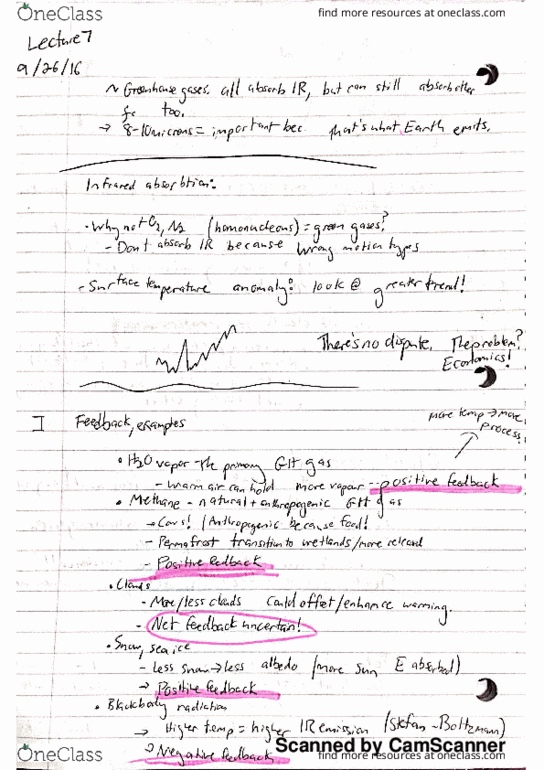 OneClass
find more resources at oneclass.com
Lecture 7
9/26/16
~ Greenhouse gases. all absorb IR, but can still absorb other
too.
→ 8-10microns = important bec. that's what Earth emits.
Infrared absorbtion:
• Why not O2, N2 (homonucleous) = green gases?
- Don't absorb IR because wrong motion types
- Surface temperature anomaly: look @ greater trend!
There's no dispute. The problem?
Economics!
I Feedback, examples
more temp → more
process
• H2O vapor - the primary GH gas
- warm air can hold more vapour - positive feedback
• Methane - natural + anthropogenic GH gas
→ Cows! (Anthropogenic because food!
- Permafrost transition to wetlands/more released
- Positive feedback
• Clouds
- More/less clouds could offset/enhance warming.
- Net feedback uncertain!
• Snow, sea ice
- less snow → less albedo (more sun E absorbed)
→ Positive feedback
• Blackbody radiation
→ Higher temp = higher IR emission (Stefan-Boltzmann)
→ Negative feedback
Scanned by CamScanner
OneClass
find more resources at oneclass.com